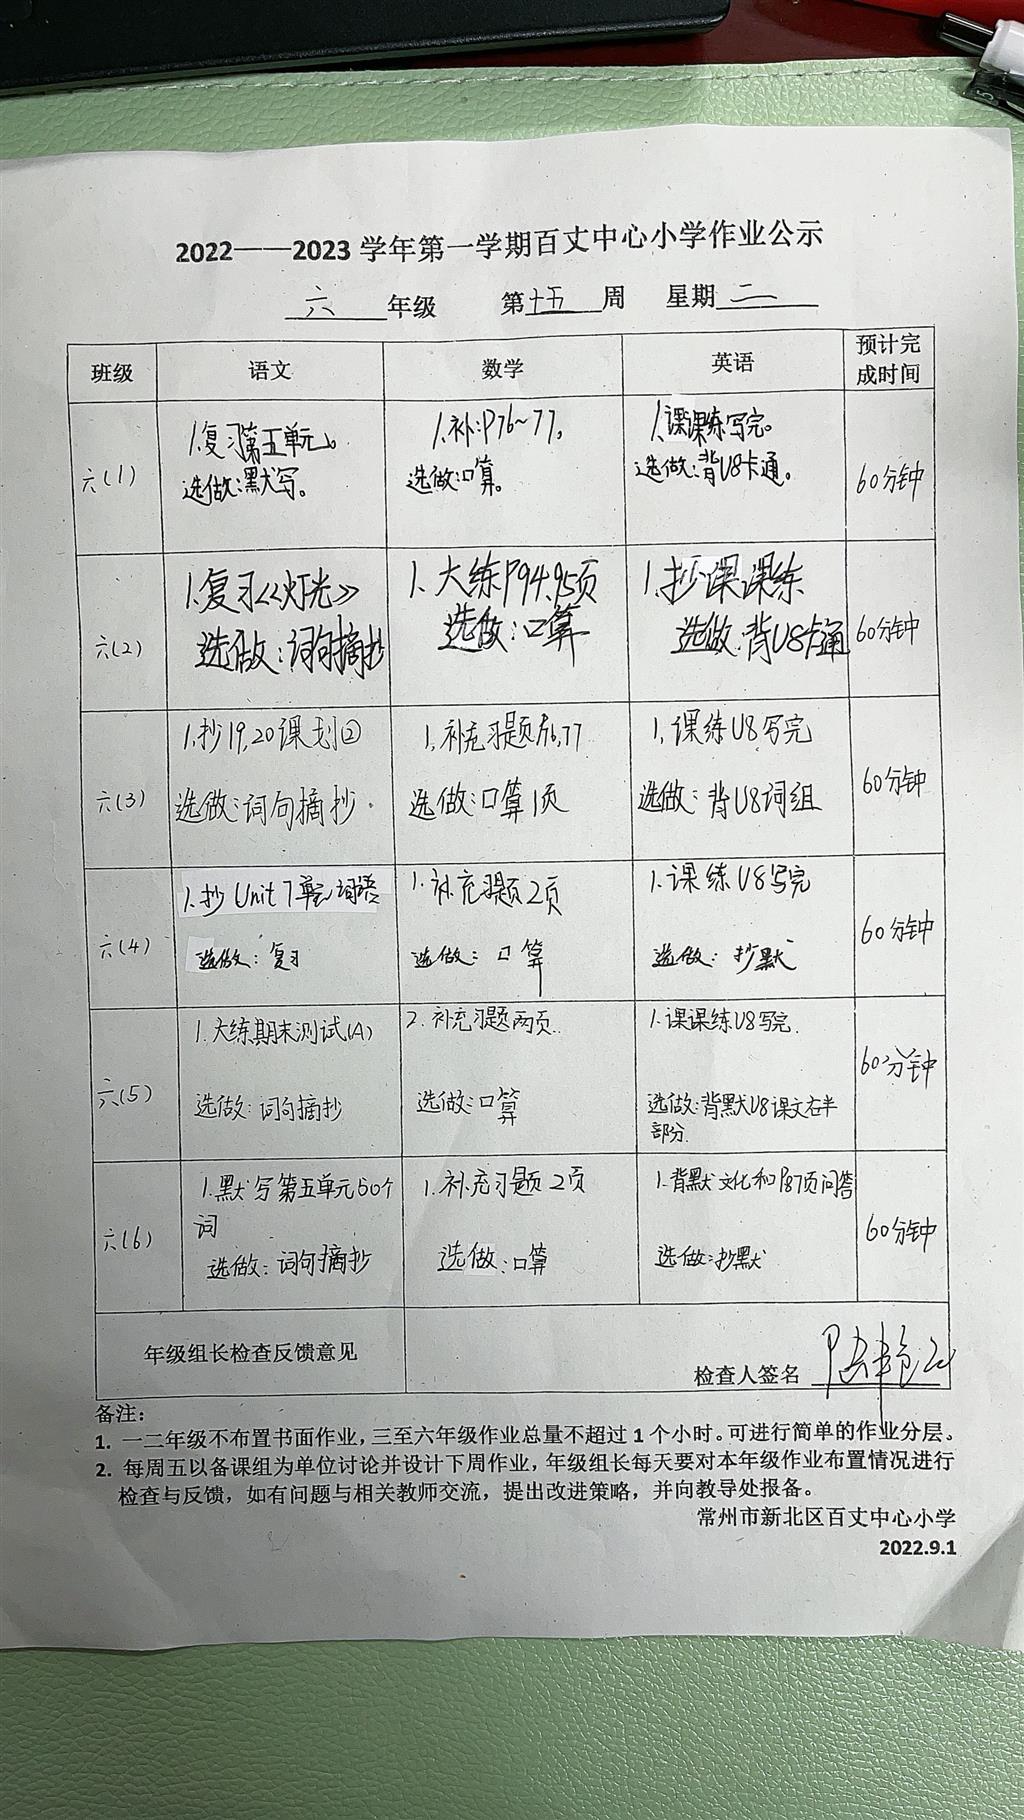 2022——2023 学年第一学期百丈中心小学作业公示
六 年级 第十五周 星期二
班级 语文 数学 英语 预计完成时间
六(1)
1.复习第五单元。
选做:默写。
1.补:P76~77。
选做:口算。
1.课课练写完。
选做:背U8卡通。
60分钟
六(2)
1.复习《灯光》
选做:词句摘抄
1.大练P94.95页
选做:口算
1.抄课课练
选做:背U8卡通
60分钟
六(3)
1.抄19,20课划②
选做:词句摘抄.
1,补充习题P76,77
选做:口算1页
1,课练U8写完
选做:背U8词组
60分钟
六(4)
1.抄Unit 7单元词语
选做:复习
1.补充习题2页
选做:口算
1.课练U8写完
选做:抄默
60分钟
六(5)
1.大练期末测试(A)
选做:词句摘抄
2.补充习题两页.
选做:口算
1.课课练U8写完.
选做:背默U8课文右半
部分.
60分钟
六(6)
1.默写第五单元50个
词
选做:词句摘抄
1.补充习题2页
选做:口算
1.背默文化和P87页问答
选做:抄默
60分钟
年级组长检查反馈意见
检查人签名
备注:
1. 一二年级不布置书面作业,三至六年级作业总量不超过 1 个小时。可进行简单的作业分层。
2. 每周五以备课组为单位讨论并设计下周作业,年级组长每天要对本年级作业布置情况进行
检查与反馈,如有问题与相关教师交流,提出改进策略,并向教导处报备。
常州市新北区百丈中心小学
2022.9.1